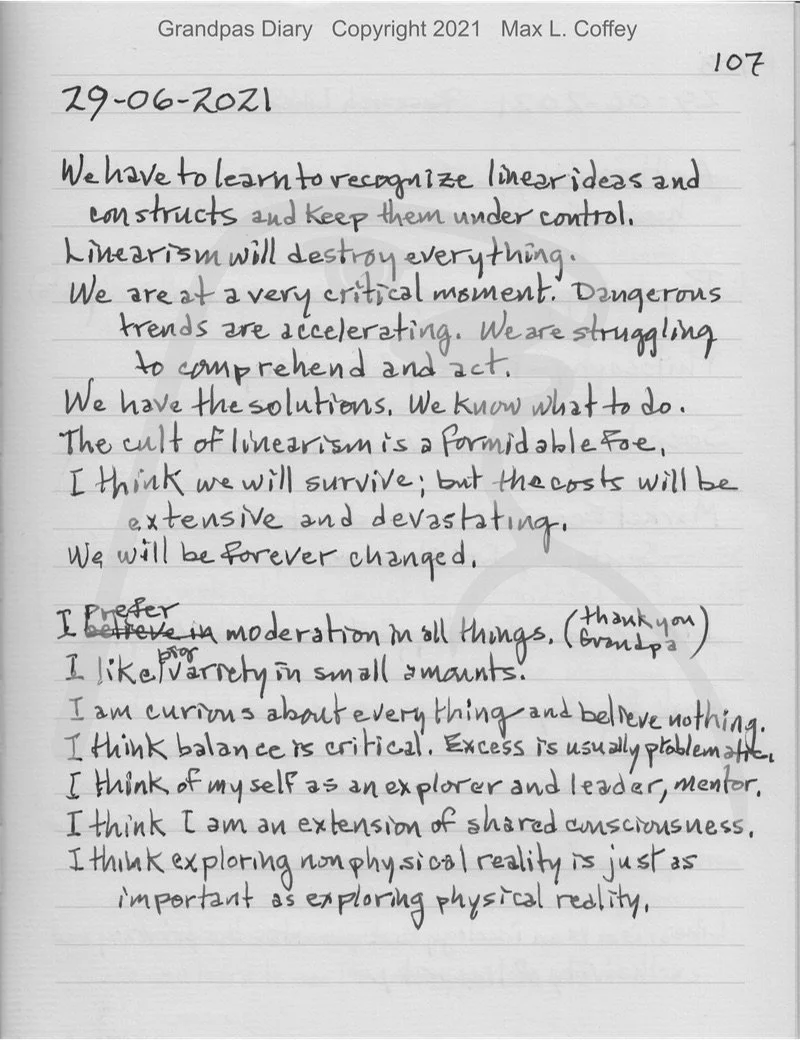 Grandpas Diary Copyright 2021 Max L. Coffey
107
29-06-2021
We have to learn to recognize linear ideas and
constructs and keep them under control.
Linearism will destroy everything.
We are at a very critical moment. Dangerous
trends are accelerating. We are struggling
to comprehend and act.
We have the solutions. We know what to do.
The cult of linearism is a formidable foe.
I think we will survive; but the costs will be
extensive and devastating.
We will be forever changed.
prefer
I believe in moderation in all things. (thank you
Grandpa)
big
I like variety in small amounts.
I am curious about everything and believe nothing.
I think balance is critical. Excess is usually problematic.
I think of myself as an explorer and leader, mentor.
I think I am an extension of shared consciousness.
I think exploring nonphysical reality is just as
important as exploring physical reality.